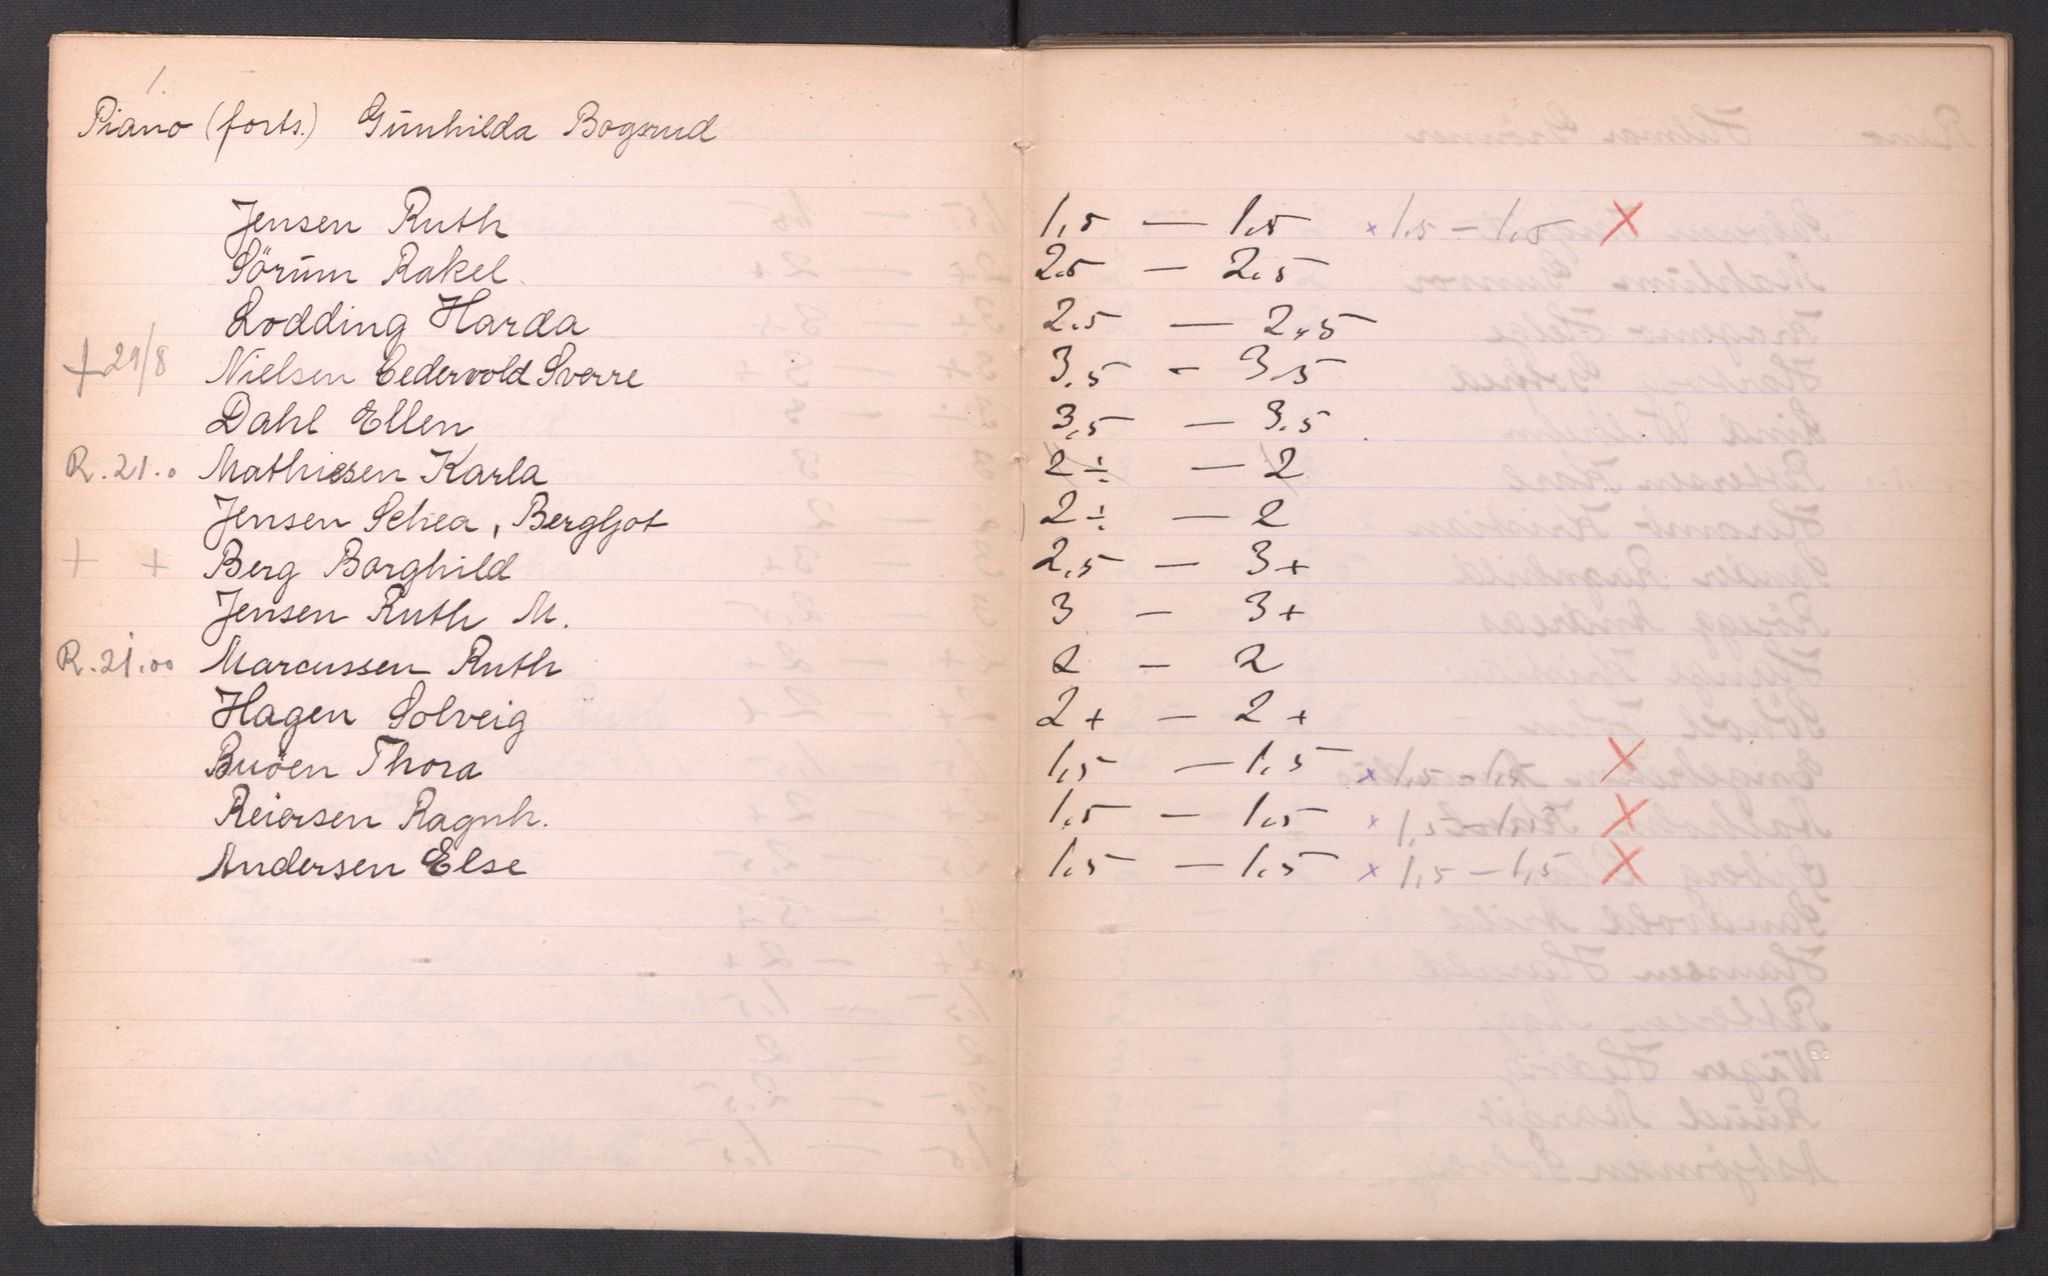 1.
Piano (forts.) Gunhilda Bogsrud
Jensen Ruth 1,5 — 1,5 × 1,5 — 1,5 X
Sörum Rakel 2.5 — 2.5
Lodding Harda 2.5 — 2,5
+ 29/8 Nielsen Cedervold Sverre 3,5 - 3.5
Dahl Ellen 3,5 — 3.5
R. 21.0 Mathiesen Karla 2 ÷ — 2
Jensen Schea, Bergljot 2 ÷ — 2
+ + Berg Borghild 2,5 — 3+
Jensen Ruth M. 3 — 3+
R. 21.00 Marcussen Ruth 2 — 2
Hagen Solveig 2+ — 2+
Buöen Thora 1,5 — 1,5 × 1,5 - 1,5 X
Reiersen Ragnh. 1,5 — 1,5 × X
Andersen Else 1,5 — 1,5 × 1,5 — 1,5 X